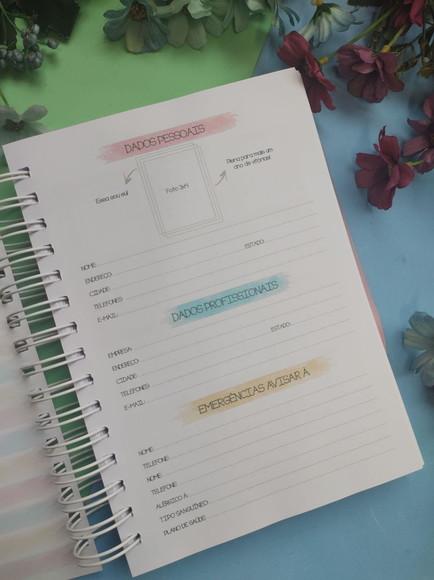 DADOS PESSOAIS
Essa sou eu!
Foto 3x4
Plena para mais um
ano de vitórias!
NOME:
ENDEREÇO:
CIDADE: ESTADO:
TELEFONES:
E-MAIL:
DADOS PROFISSIONAIS
EMPRESA:
ENDEREÇO:
CIDADE: ESTADO:
TELEFONES:
E-MAIL:
EMERGÊNCIAS AVISAR À
NOME:
TELEFONE:
NOME:
TELEFONE:
ALÉRGICO À:
TIPO SANGUÍNEO:
PLANO DE SAÚDE: